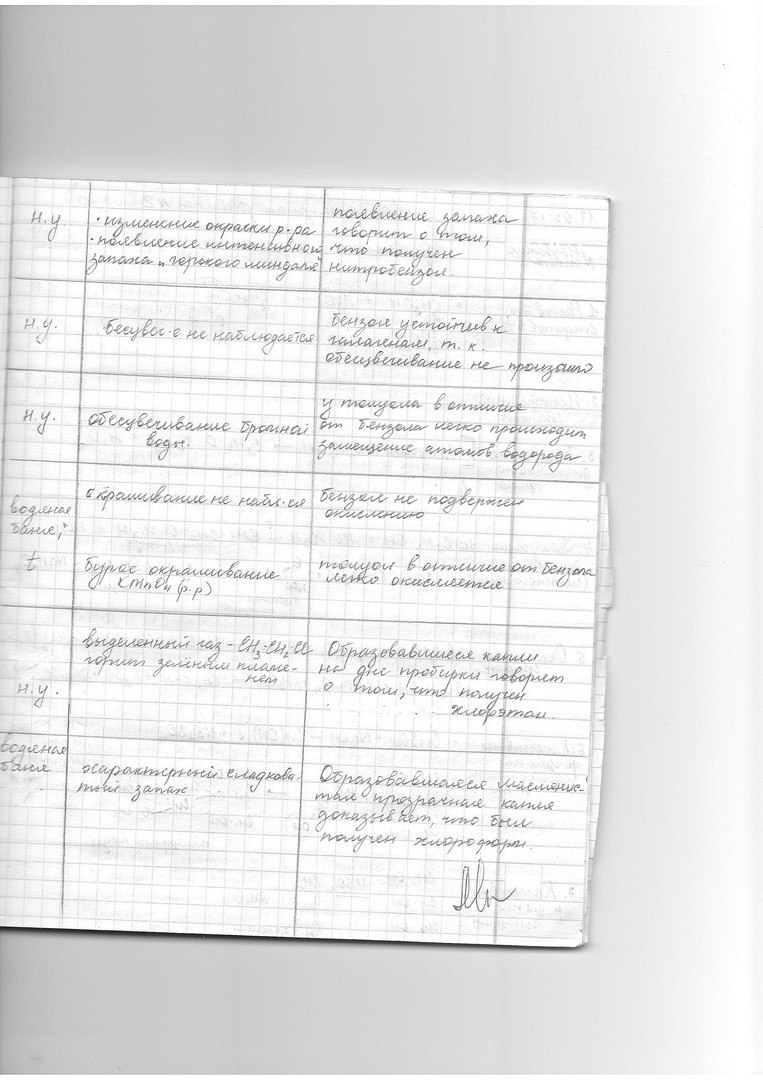 н.у
· изменение окраски р-ра
· появление интенсивного
запаха „горького миндаля"
появление запаха
говорит о том,
что получен
нитробензол.
н.у.
бесцвет-е не наблюдается
бензол устойчив к
галагенам, т.к.
обесцвечивание не произошло
н.у.
обесцвечивание бромной
воды.
у толуола в отличие
от бензола легко происходит
замещение атомов водорода
водяная
баня,
t
окрашивание не набл-ся
бензол не подвержен
окислению
бурое окрашивание
KMnO4 (р.р)
толуол в отличие от бензола
легко окисляется
н.у.
выделенный газ - CH3-CH2-Cl
горит зелёным пламе-
нем
Образовавшиеся капли
на дне пробирки говорят
о том, что получен
хлорэтан.
водяная
баня
характерный сладкова-
тый запах
Образовавшаяся маслянис-
тая прозрачная капля
доказывает, что был
получен хлороформ.